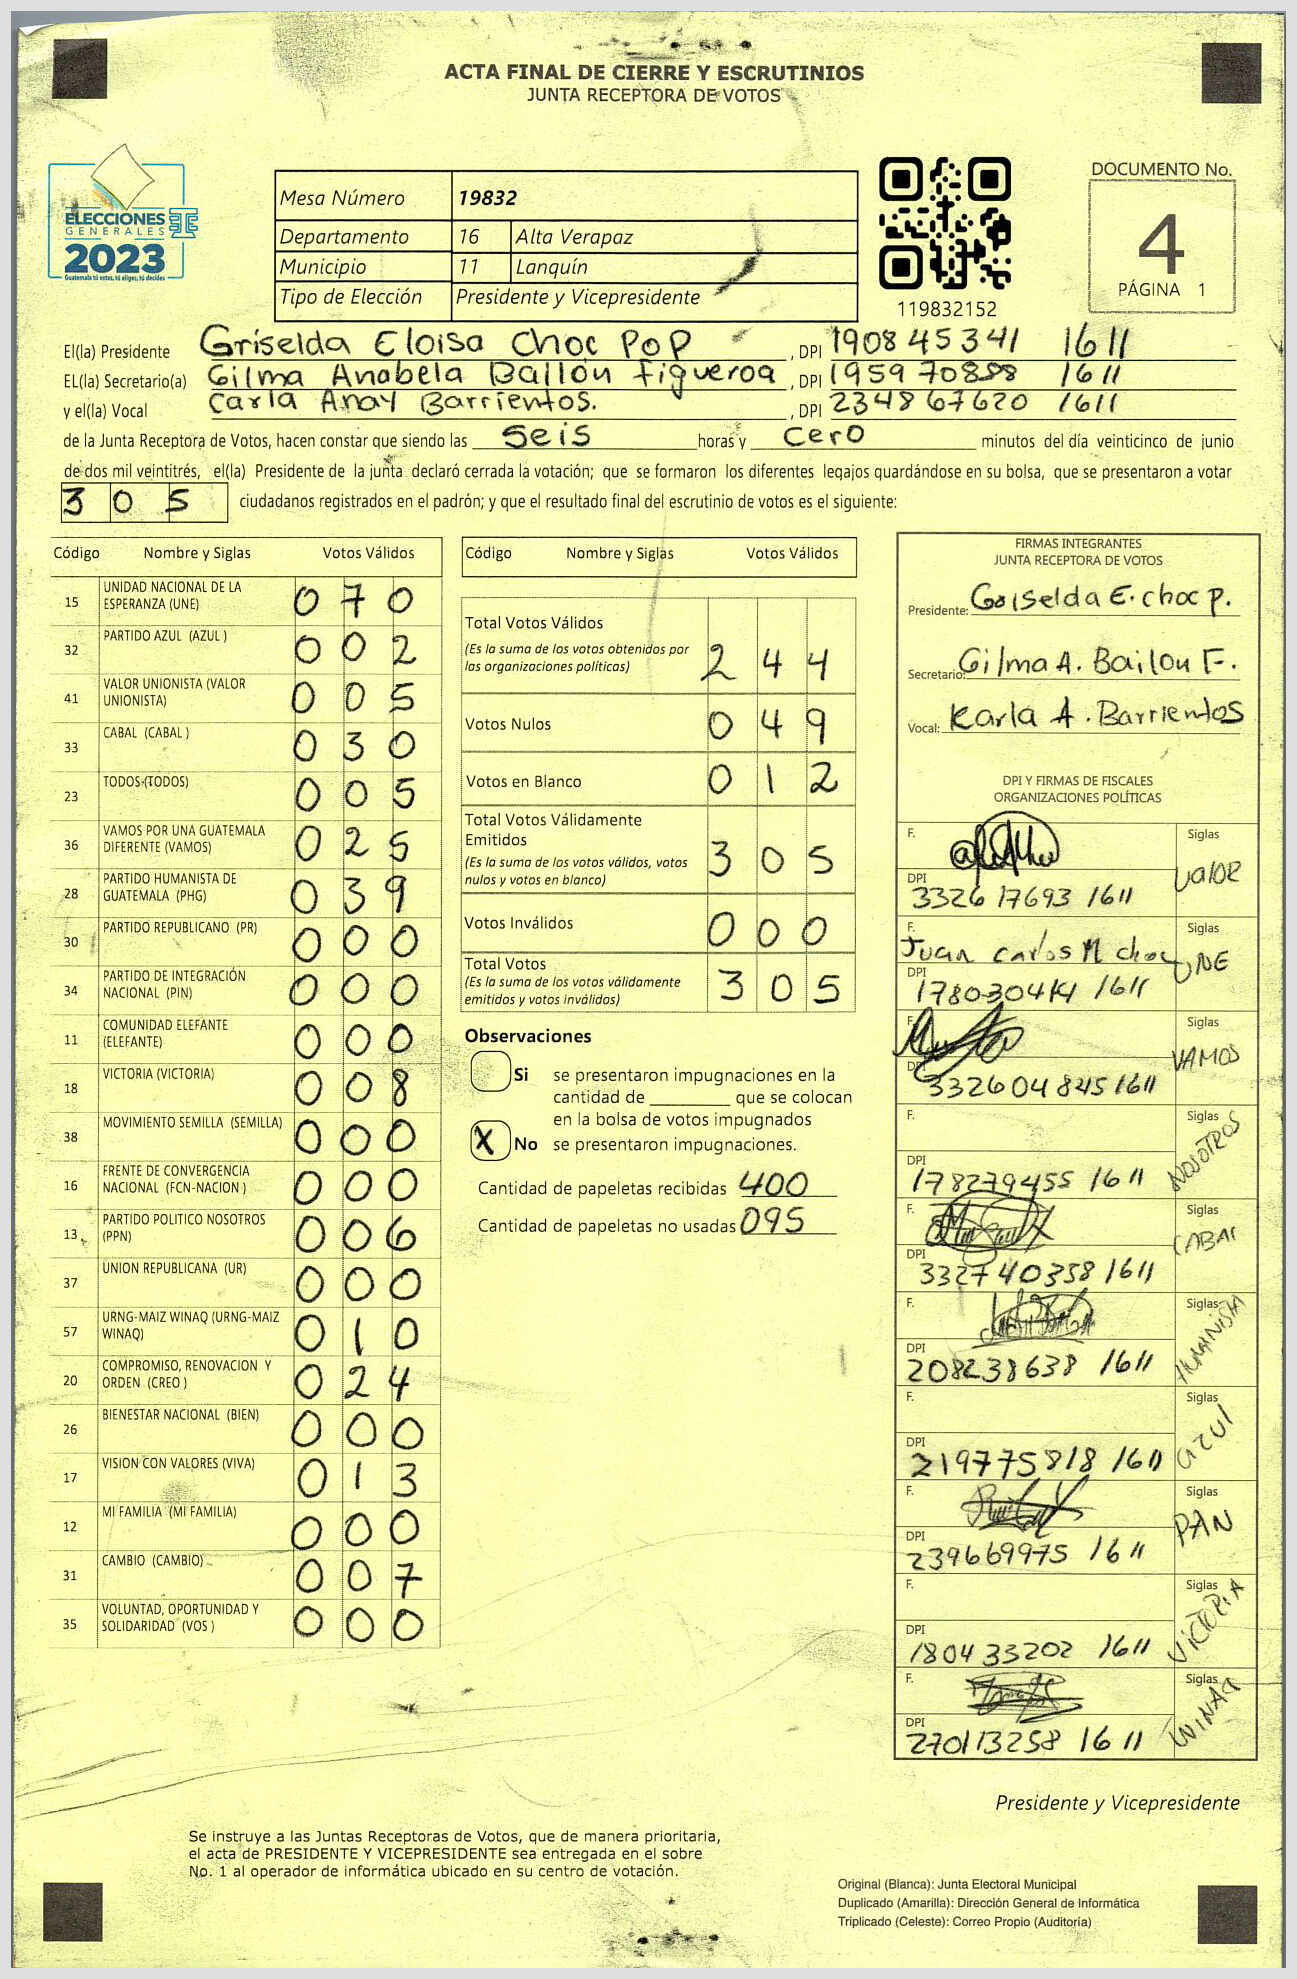 ACTA FINAL DE CIERRE Y ESCRUTINIOS
JUNTA RECEPTORA DE VOTOS
ELECCIONES
GENERALES
2023
Guatemala tú votas, tú eliges, tú decides
Mesa Número 19832
Departamento 16 Alta Verapaz
Municipio 11 Lanquín
Tipo de Elección Presidente y Vicepresidente
119832152
DOCUMENTO No.
4
PÁGINA 1
El(la) Presidente Griselda Eloisa Choc Pop , DPI 190845341 1611
EL(la) Secretario(a) Gilma Anabela Bailón Figueroa , DPI 195970888 1611
y el(la) Vocal Carla Anay Barrientos. , DPI 234867620 1611
de la Junta Receptora de Votos, hacen constar que siendo las seis horas y cero minutos del día veinticinco de junio
de dos mil veintitrés, el(la) Presidente de la junta declaró cerrada la votación; que se formaron los diferentes legajos guardándose en su bolsa, que se presentaron a votar
305 ciudadanos registrados en el padrón; y que el resultado final del escrutinio de votos es el siguiente:
Código Nombre y Siglas Votos Válidos
15 UNIDAD NACIONAL DE LA ESPERANZA (UNE) 070
32 PARTIDO AZUL (AZUL ) 002
41 VALOR UNIONISTA (VALOR UNIONISTA) 005
33 CABAL (CABAL ) 030
23 TODOS (TODOS) 005
36 VAMOS POR UNA GUATEMALA DIFERENTE (VAMOS) 025
28 PARTIDO HUMANISTA DE GUATEMALA (PHG) 039
30 PARTIDO REPUBLICANO (PR) 000
34 PARTIDO DE INTEGRACIÓN NACIONAL (PIN) 000
11 COMUNIDAD ELEFANTE (ELEFANTE) 000
18 VICTORIA (VICTORIA) 008
38 MOVIMIENTO SEMILLA (SEMILLA) 000
16 FRENTE DE CONVERGENCIA NACIONAL (FCN-NACION ) 000
13 PARTIDO POLITICO NOSOTROS (PPN) 006
37 UNION REPUBLICANA (UR) 000
57 URNG-MAIZ WINAQ (URNG-MAIZ WINAQ) 010
20 COMPROMISO, RENOVACION Y ORDEN (CREO ) 024
26 BIENESTAR NACIONAL (BIEN) 000
17 VISION CON VALORES (VIVA) 013
12 MI FAMILIA (MI FAMILIA) 000
31 CAMBIO (CAMBIO) 007
35 VOLUNTAD, OPORTUNIDAD Y SOLIDARIDAD (VOS ) 000
Código Nombre y Siglas Votos Válidos
Total Votos Válidos
(Es la suma de los votos obtenidos por
las organizaciones políticas) 244
Votos Nulos 049
Votos en Blanco 012
Total Votos Válidamente
Emitidos
(Es la suma de los votos válidos, votos
nulos y votos en blanco) 305
Votos Inválidos 000
Total Votos
(Es la suma de los votos válidamente
emitidos y votos inválidos) 305
Observaciones
Si se presentaron impugnaciones en la
cantidad de que se colocan
en la bolsa de votos impugnados
X No se presentaron impugnaciones.
Cantidad de papeletas recibidas 400
Cantidad de papeletas no usadas 095
FIRMAS INTEGRANTES
JUNTA RECEPTORA DE VOTOS
Presidente: Griselda E. Choc P.
Secretario: Gilma A. Bailon F.
Vocal: Karla A. Barrientos
DPI Y FIRMAS DE FISCALES
ORGANIZACIONES POLÍTICAS
F. Siglas
DPI 3326 17693 1611 Valor
F. Juan Carlos M choc Siglas
DPI 1611 UNE
F. Siglas
DPI 332604845 1611 VAMOS
F. Siglas
DPI 178279455 1611 NOSOTROS
F. Siglas
DPI 332740358 1611 CABAL
F. Siglas
DPI 208238638 1611
F. Siglas
DPI 219775818 1611 azul
F. Siglas
DPI 239669975 1611 PAN
F. Siglas
DPI 180433202 1611 VICTORIA
F. Siglas
DPI 270113258 1611 WINAQ
Presidente y Vicepresidente
Se instruye a las Juntas Receptoras de Votos, que de manera prioritaria,
el acta de PRESIDENTE Y VICEPRESIDENTE sea entregada en el sobre
No. 1 al operador de informática ubicado en su centro de votación.
Original (Blanca): Junta Electoral Municipal
Duplicado (Amarilla): Dirección General de Informática
Triplicado (Celeste): Correo Propio (Auditoría)